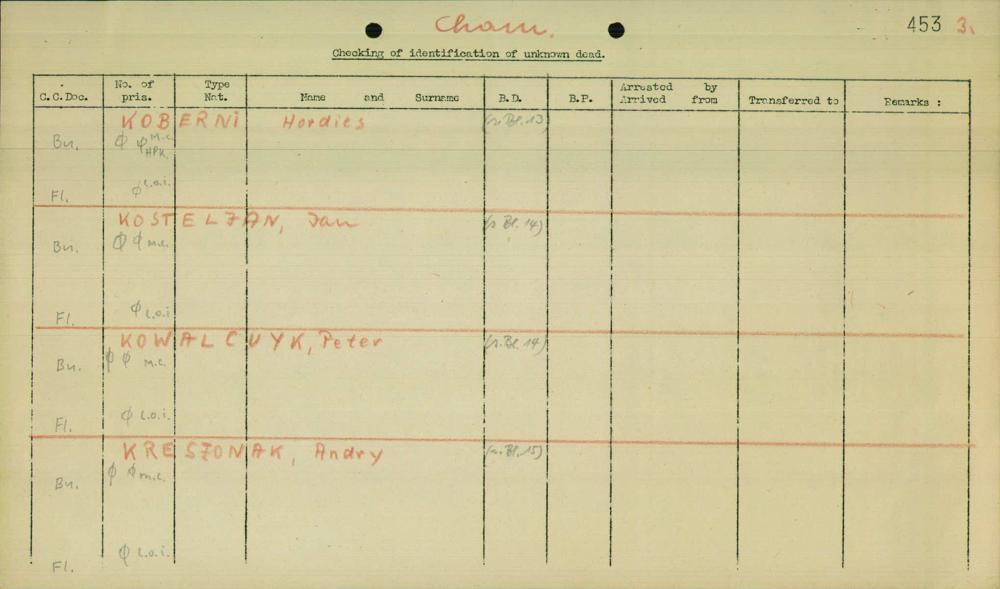 Cham. 453 3.
Checking of identification of unknown dead.
C.C.Doc. No. of pris. Type Nat. Name and Surname B.D. B.P. Arrested by Arrived from Transferred to Remarks :
KOBERNI Hordies (s. Bl. 13)
Bu. ϕ ϕ M.C.
HPK.
Fl. ϕ l.o.i.
KOSTELZAN, Jan (s Bl. 14)
Bu. ϕ ϕ m.c.
Fl. ϕ l.o.i
KOWALCUYK, Peter (s. Bl. 14)
Bu. ϕ ϕ m.c.
Fl. ϕ l.o.i.
KRESZONAK, Andry (s. Bl. 15)
Bu. ϕ ϕ m.c.
Fl. ϕ l.o.i.